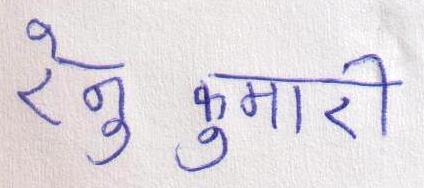 रेनु कुमारी